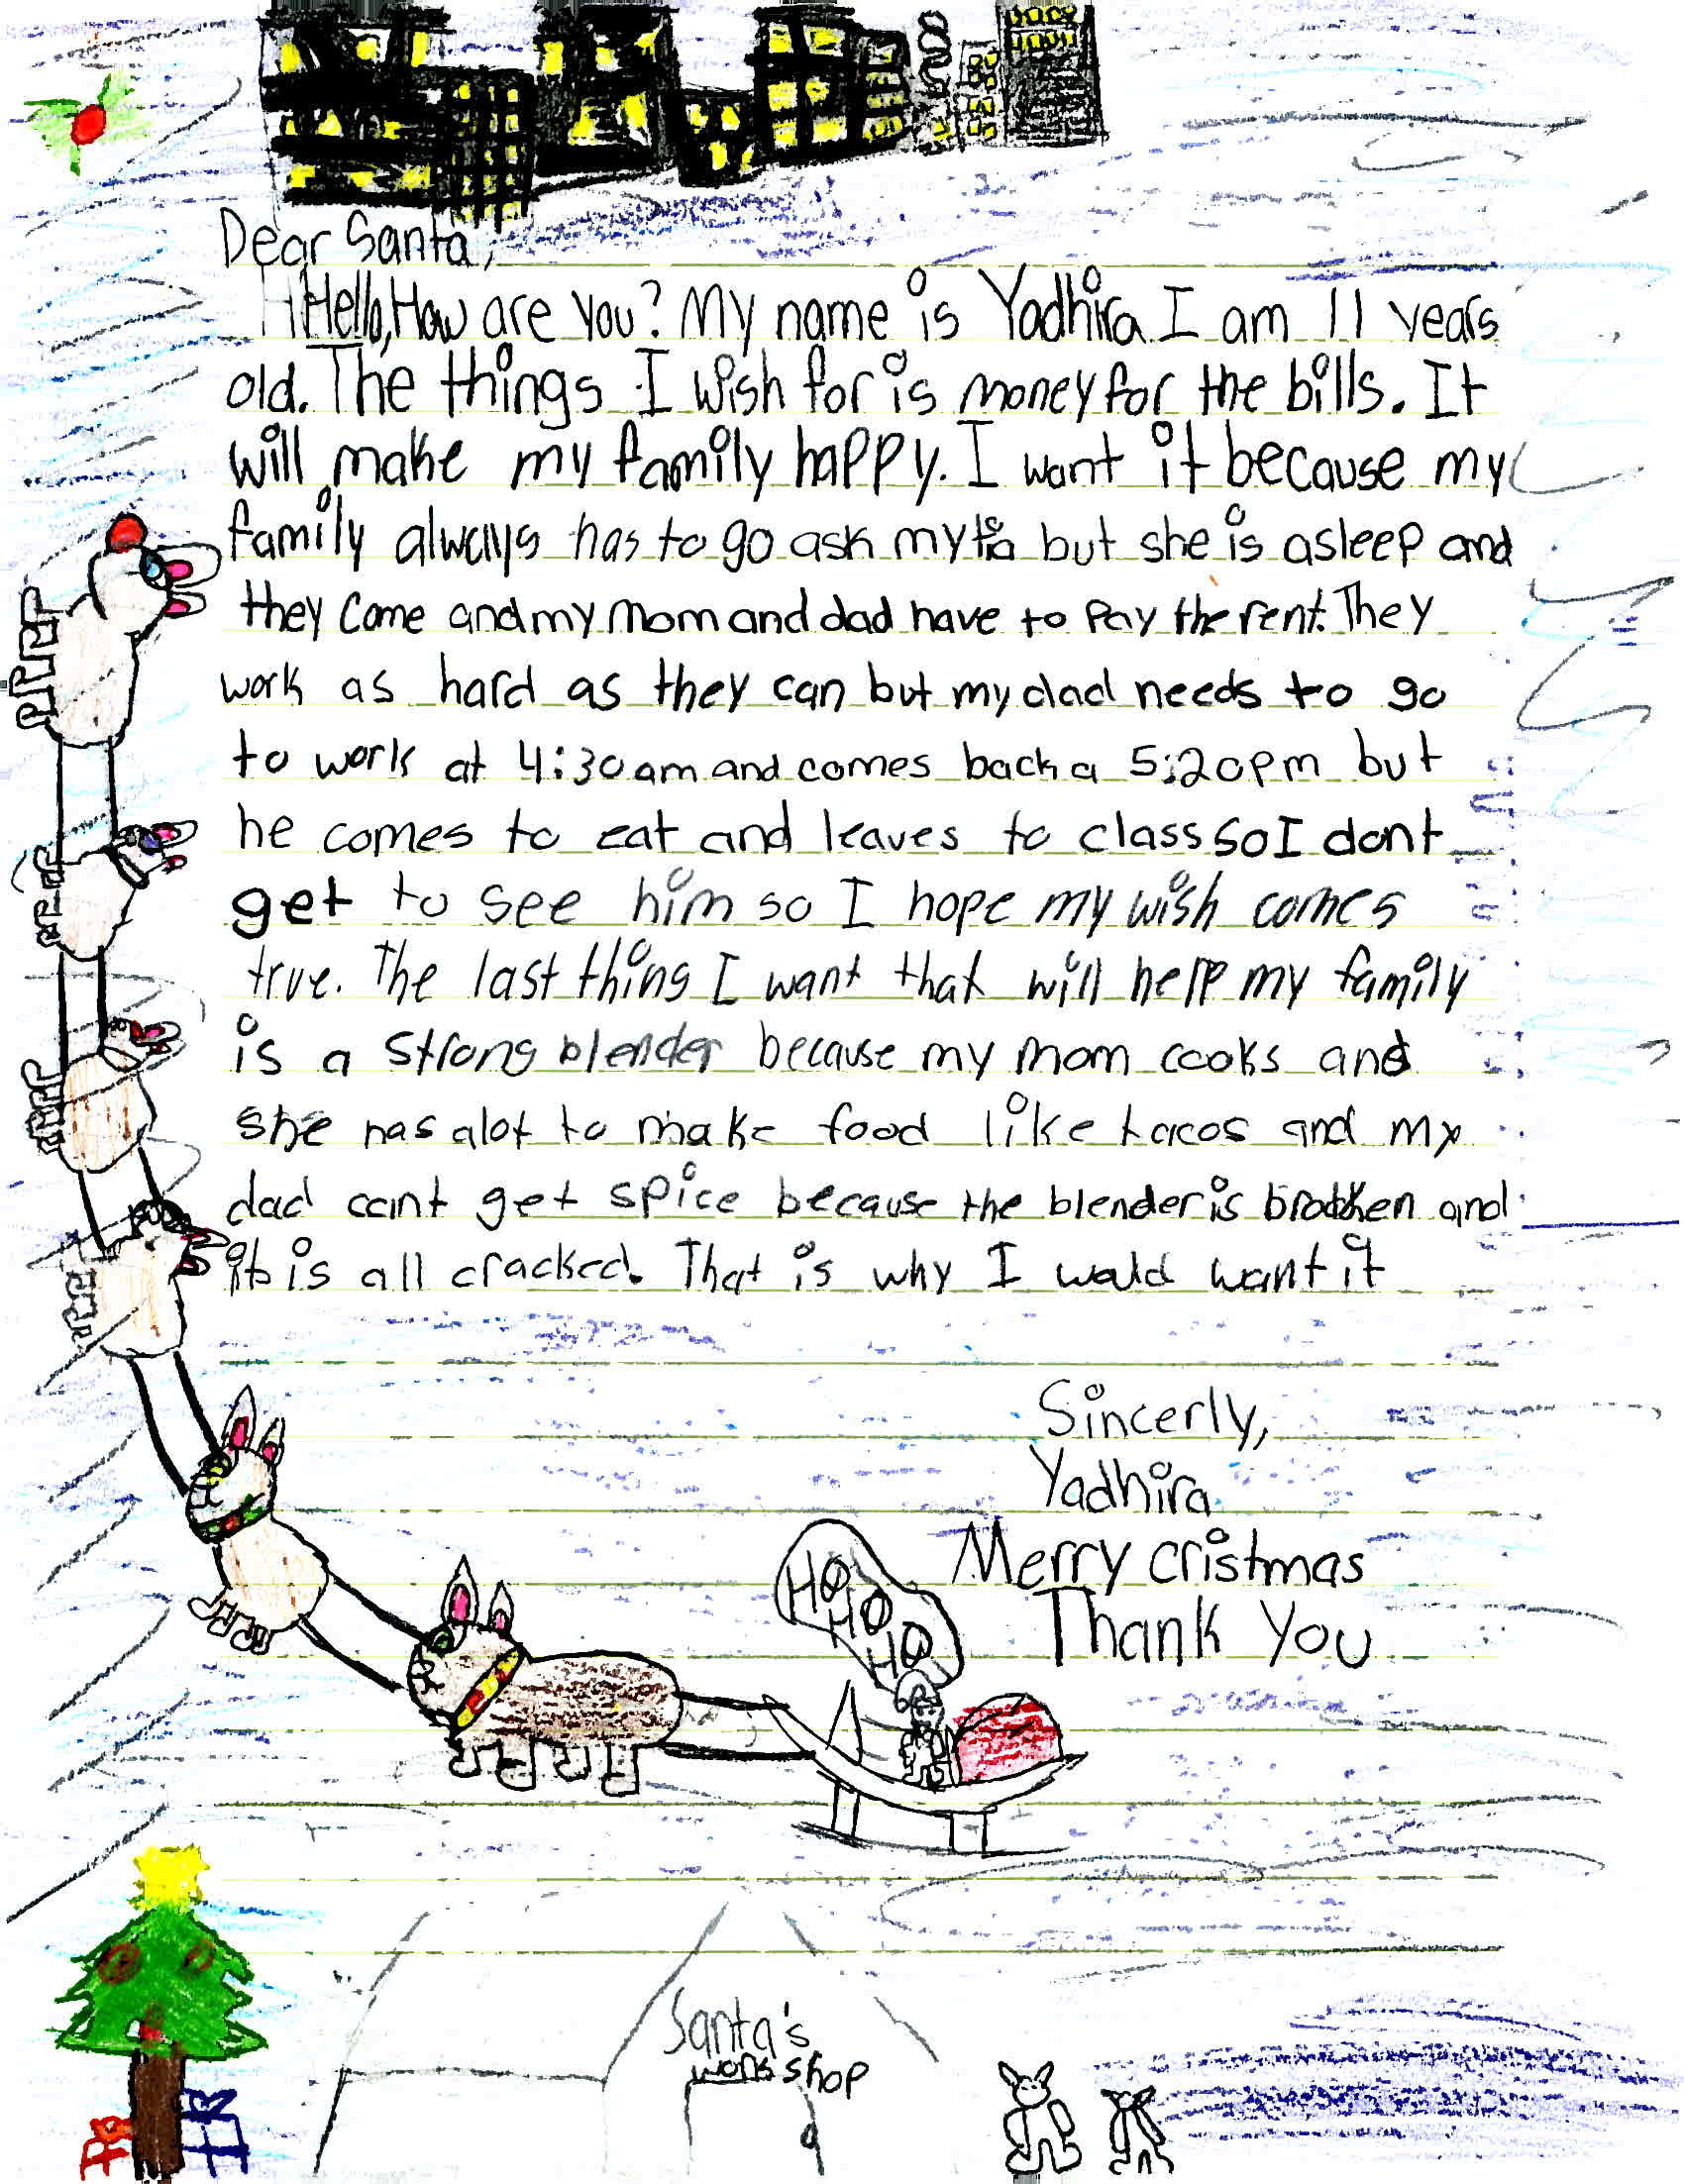 Dear Santa,
Hello, How are you? My name is Yadhira I am 11 years
old. The things I wish for is money for the bills. It
will make my family happy. I want it because my
family always has to go ask my tia but she is asleep and
they come and my mom and dad have to pay the rent. They
work as hard as they can but my dad needs to go
to work at 4:30am and comes back a 5:20pm but
he comes to eat and leaves to class so I dont
get to see him so I hope my wish comes
true. The last thing I want that will help my family
is a strong blender because my mom cooks and
she has alot to make food like tacos and my
dad cant get spice because the blender is brocken and
it is all cracked. That is why I would want it
Sincerly,
Yadhira
Merry cristmas
Thank You
HO
HO
HO
Santa's
workshop